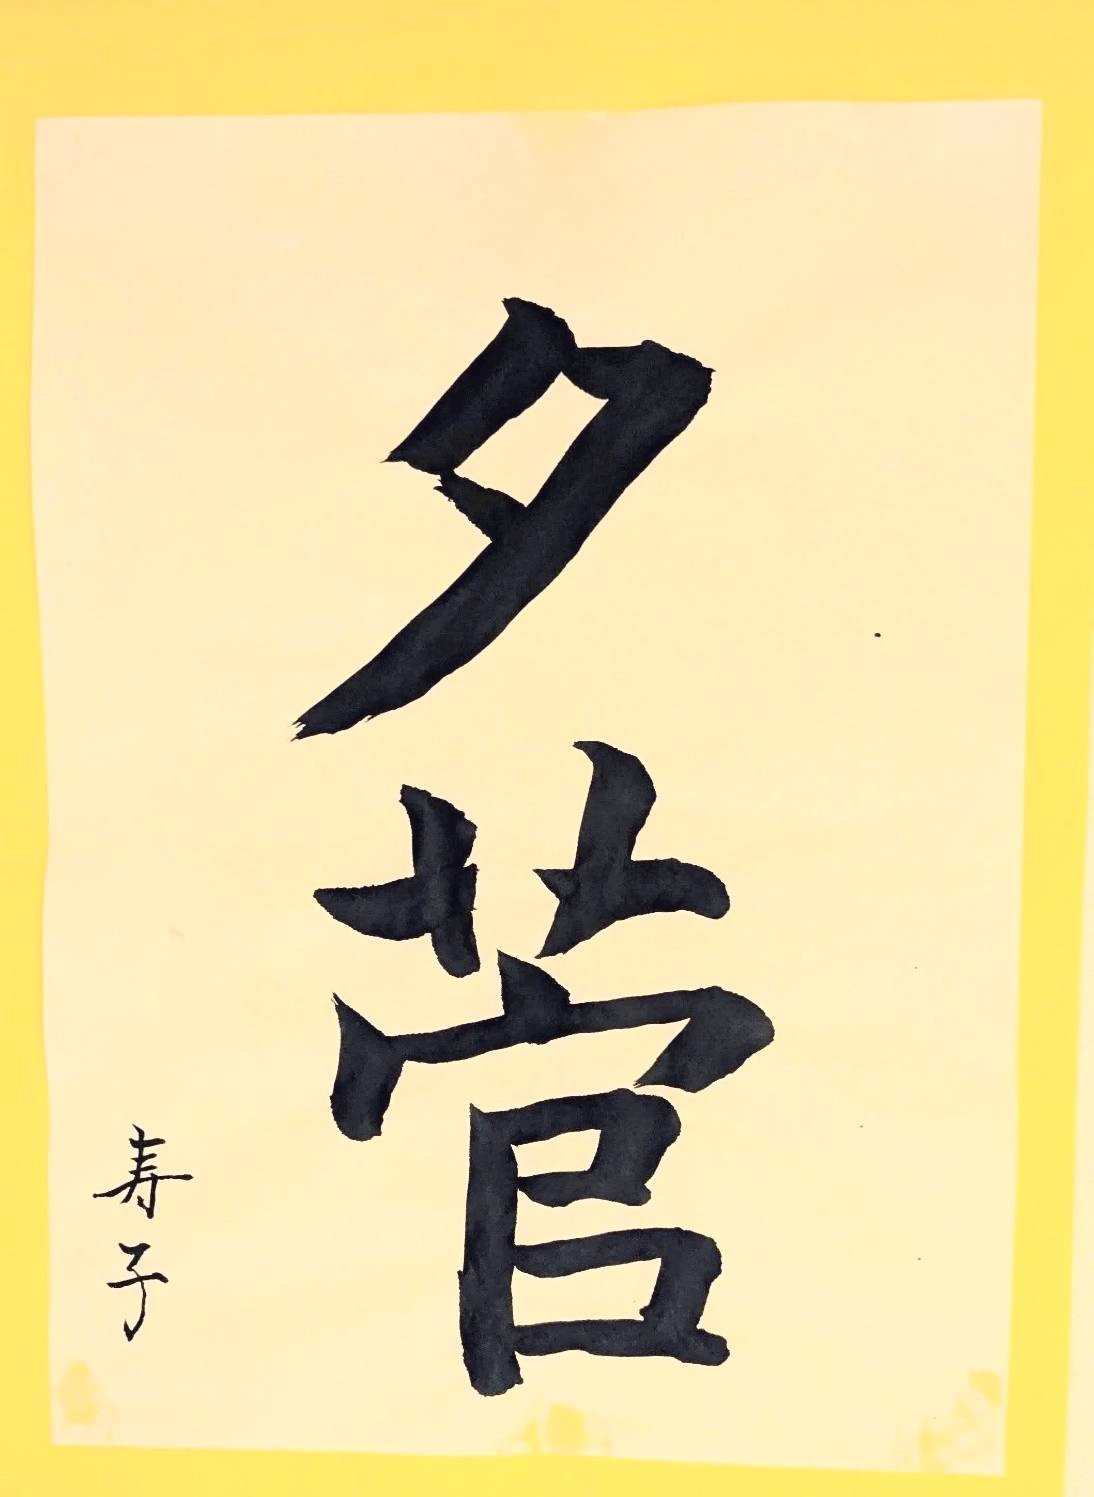 夕菅
寿子